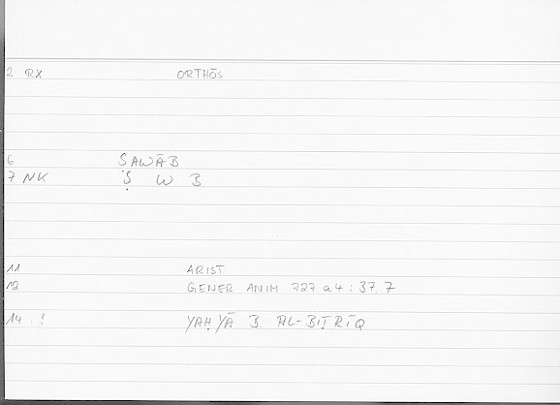 2 RX ORTHŌS
6 ṢAWĀB
7 NK Ṣ W B
11 ARIST
12 GENER ANIM 727 a 4 : 37. 7
14 . ! YAḤYĀ B. AL-BIṬRĪQ